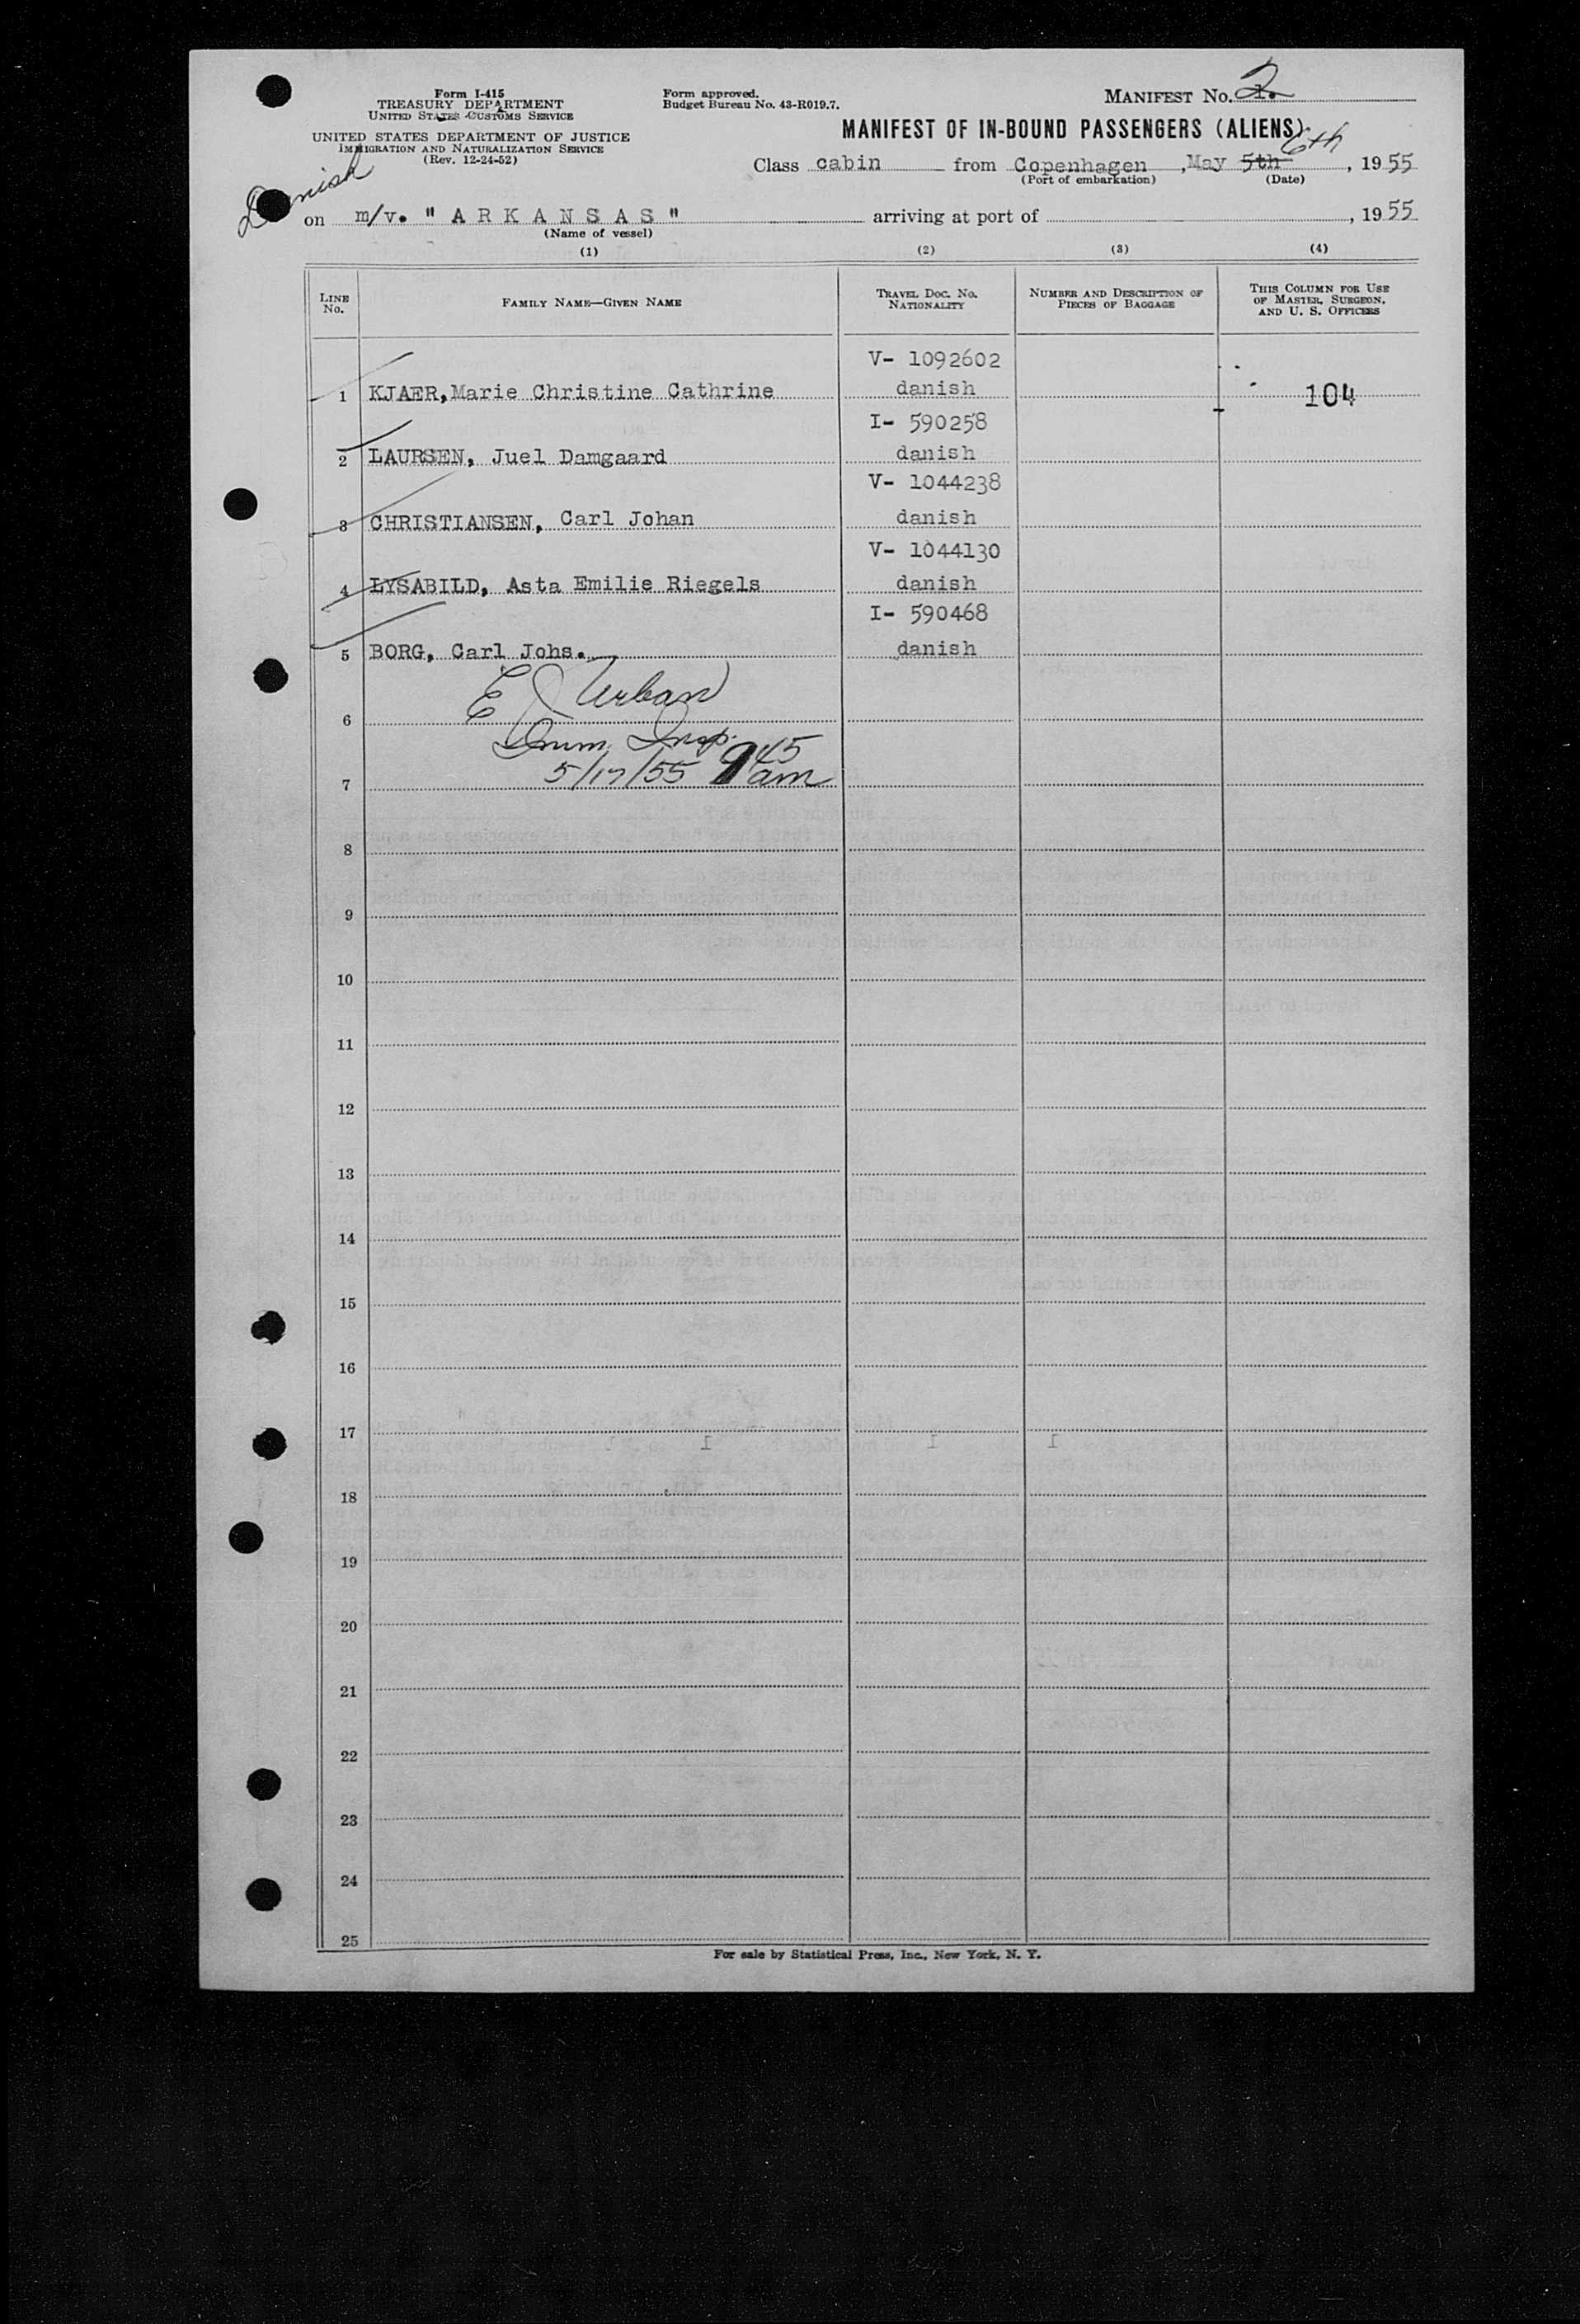 Form I-415
TREASURY DEPARTMENT
UNITED STATES CUSTOMS SERVICE
UNITED STATES DEPARTMENT OF JUSTICE
IMMIGRATION AND NATURALIZATION SERVICE
(Rev. 12-24-52)
Form approved.
Budget Bureau No. 43-R019.7.
MANIFEST No. 2
MANIFEST OF IN-BOUND PASSENGERS (ALIENS)
Class cabin from Copenhagen, May 5th 6th, 1955
(Port of embarkation) (Date)
Danish
on m/v. " A R K A N S A S " arriving at port of , 1955
(Name of vessel)
(1) (2) (3) (4)
LINE No.
FAMILY NAME—GIVEN NAME
TRAVEL DOC. NO. NATIONALITY
NUMBER AND DESCRIPTION OF PIECES OF BAGGAGE
THIS COLUMN FOR USE OF MASTER, SURGEON, AND U. S. OFFICERS
V- 1092602
1 KJAER, Marie Christine Cathrine danish 104
I- 590258
2 LAURSEN, Juel Damgaard danish
V- 1044238
3 CHRISTIANSEN, Carl Johan danish
V- 1044130
4 LYSABILD, Asta Emilie Riegels danish
I- 590468
5 BORG, Carl Johs. danish
E J Urban
6
Imm. Insp.
5/17/55 9 45 am
7
8
9
10
11
12
13
14
15
16
17
18
19
20
21
22
23
24
25
For sale by Statistical Press, Inc., New York, N. Y.